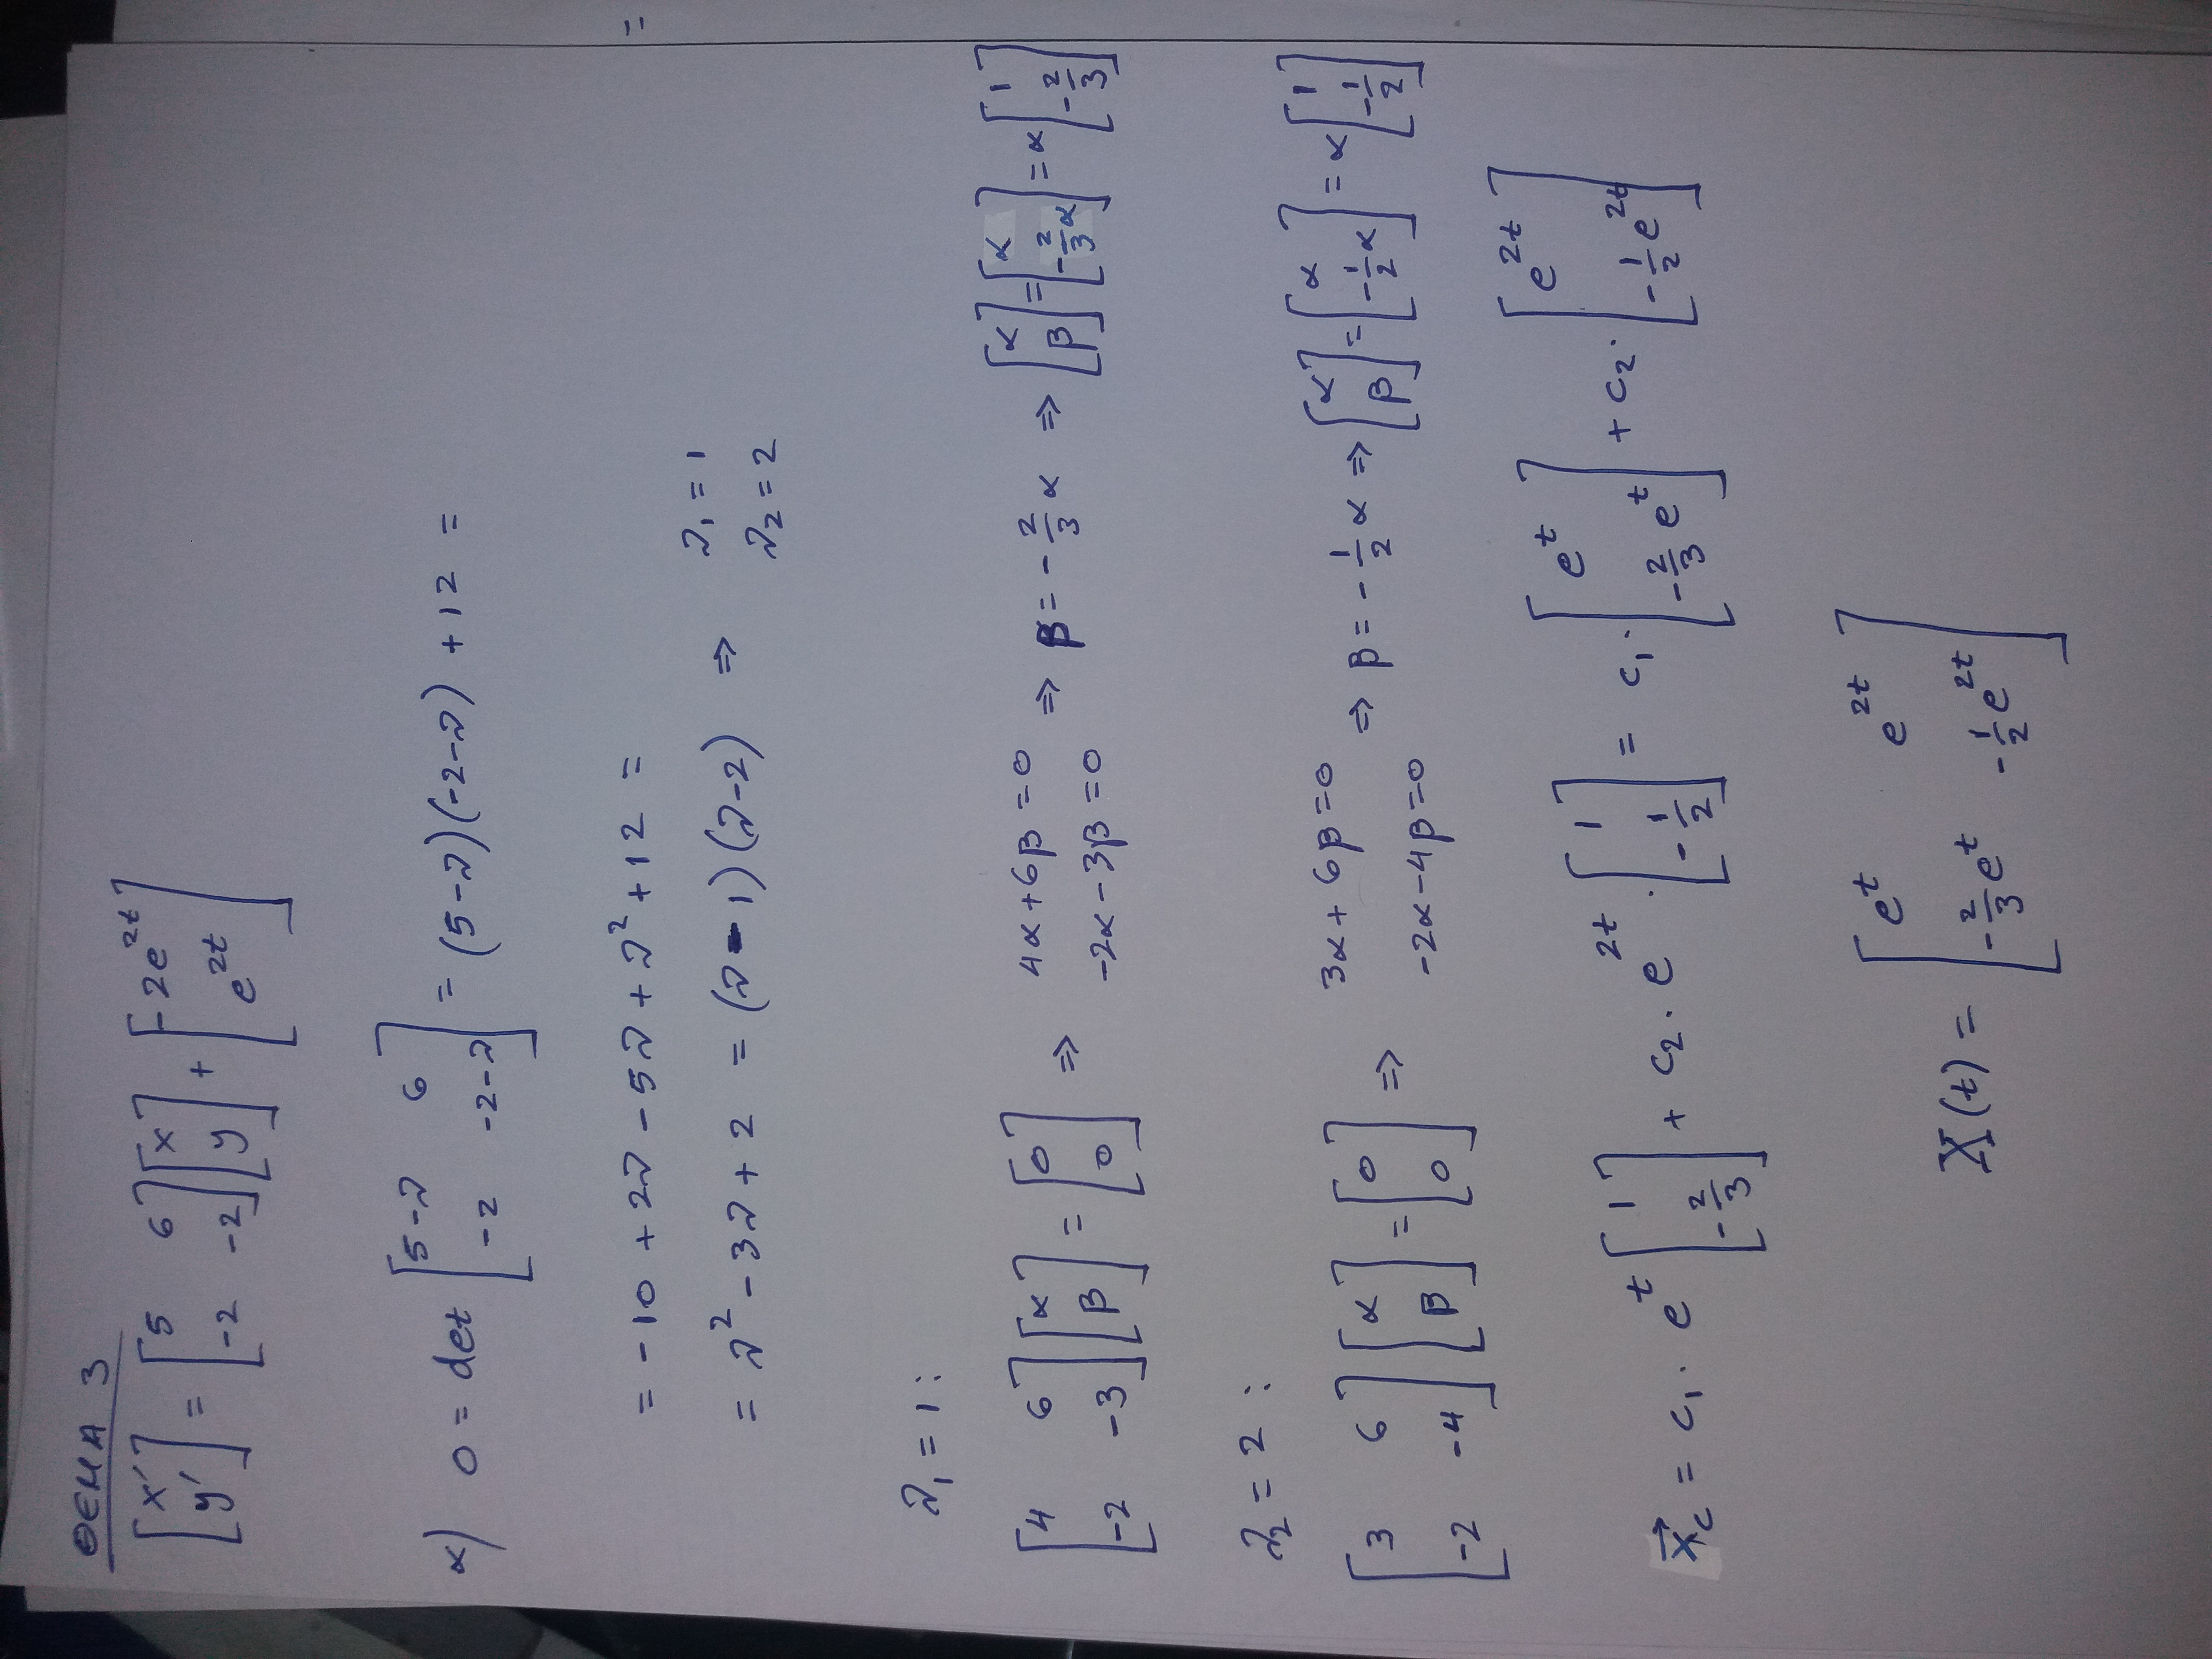 ΘΕΜΑ 3
[x' y'] = [5 6 -2 -2] [x y] + [-2e^{2t} e^{2t}]
α) 0 = det [5-λ 6 -2 -2-λ] = (5-λ)(-2-λ) + 12 =
= -10 + 2λ - 5λ + λ² + 12 =
= λ² - 3λ + 2 = (λ-1)(λ-2) ⇒ λ₁ = 1 λ₂ = 2
λ₁ = 1 :
[4 6 -2 -3] [α β] = [0 0] ⇒ 4α + 6β = 0 -2α - 3β = 0 ⇒ β = -2/3 α ⇒ [α β] = [α -2/3 α] = α [1 -2/3]
λ₂ = 2 :
[3 6 -2 -4] [α β] = [0 0] ⇒ 3α + 6β = 0 -2α - 4β = 0 ⇒ β = -1/2 α ⇒ [α β] = [α -1/2 α] = α [1 -1/2]
x⃗_c = c₁ · e^t [1 -2/3] + c₂ · e^{2t} · [1 -1/2] = c₁ · [e^t -2/3 e^t] + c₂ · [e^{2t} -1/2 e^{2t}]
X(t) = [e^t e^{2t} -2/3 e^t -1/2 e^{2t}]
=